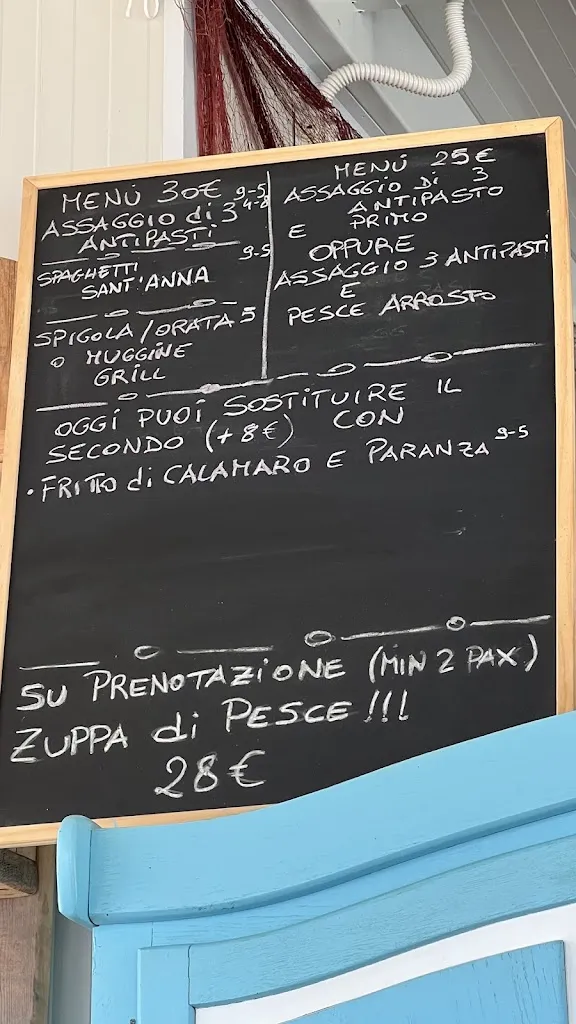 MENÙ 30€
ASSAGGIO di 3 9-5 4-8
ANTIPASTI
SPAGHETTI 9-5
SANT'ANNA
SPIGOLA/ORATA 5
O MUGGINE
GRILL
MENÙ 25€
ASSAGGIO DI 3
ANTIPASTO
E PRIMO
OPPURE
ASSAGGIO 3 ANTIPASTI
E
PESCE ARROSTO
OGGI PUOI SOSTITUIRE IL
SECONDO (+8€) CON
• FRITTO di CALAMARO E PARANZA 9-5
SU PRENOTAZIONE (MIN 2 PAX)
ZUPPA di PESCE!!!
28€